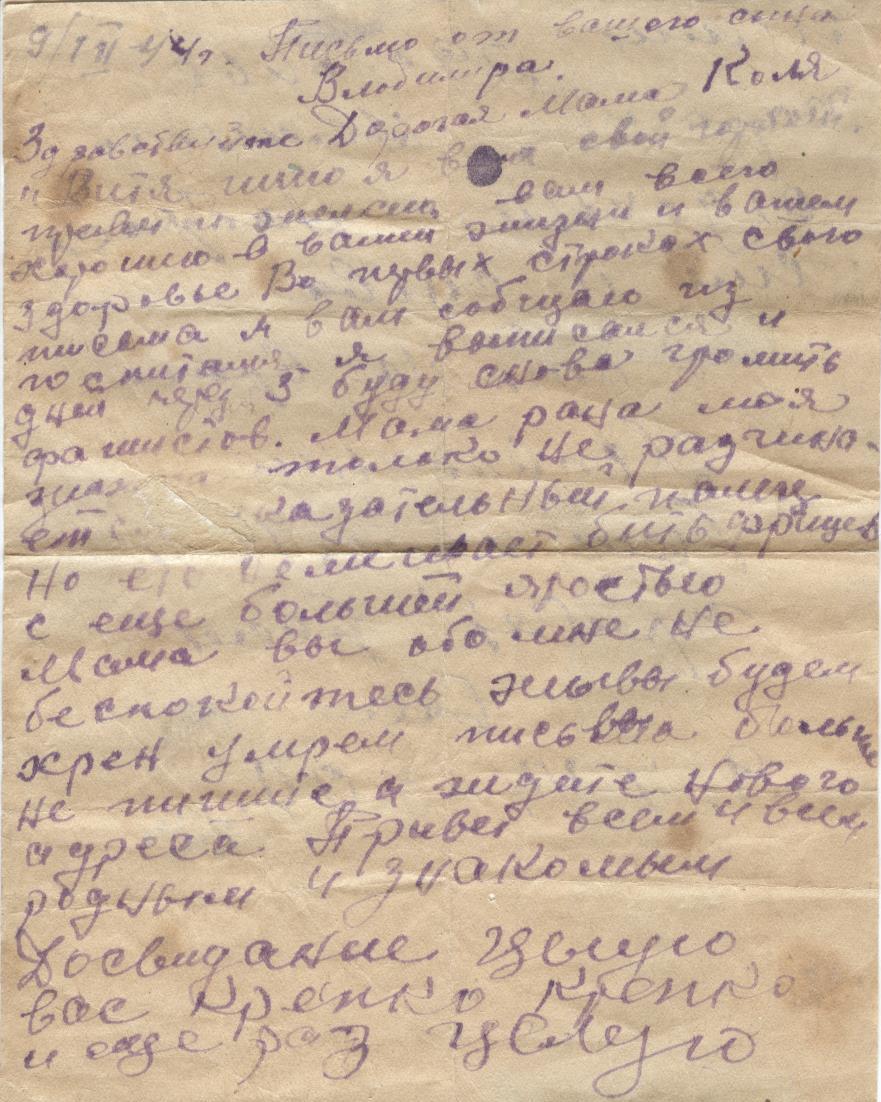 9/IV 44г. Письмо от вашего сына
Владимира.
Здравствуйте Дорогая Мама Коля
и Витя шлю я вам свой горячий
привет и желаю вам всего
хорошо в вашей жизни и вашем
здоровье Во первых строках свого
письма я вам собщаю из
госпиталя я выписался и
дней через 5 буду снова громить
фашистов. Мама рана моя
только не разгиба-
ет казательный палец
Но ето не мешает бить фрицев
с еще большей яростью
Мама вы обо мне не
беспокойтесь живы будем
хрен умрем письма больше
не пишите а ждите нового
адреса Привет всем и всем
родным и знакомым
Досвидание целую
вас крепко крепко
и еще раз целую